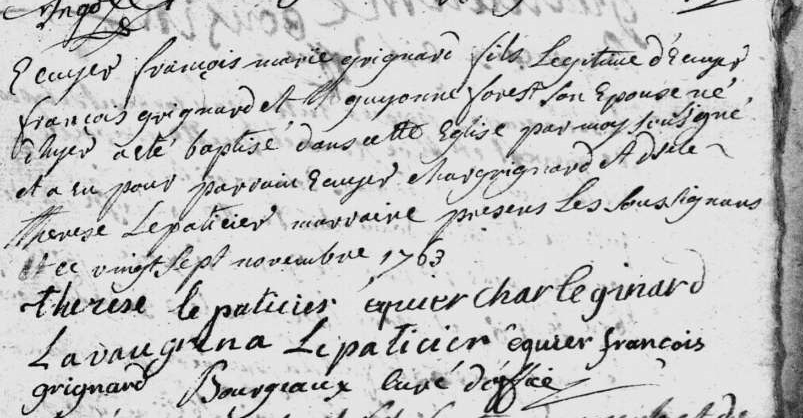 Ecuyer françois marie grignard fils Legitime d'Ecuyer
françois grignard et guyonne forest son Epouse né
d'hyer a eté baptisé dans cette Eglise par moy soussigné
et a eu pour parrain Ecuyer grignard et
therese Lepaticier marraine presens Les soussignans
ce vingt sept novembre 1763
therese le paticier équier charle ginard
Lepaticier équier françois
grignard Bourgeaux curé d'office